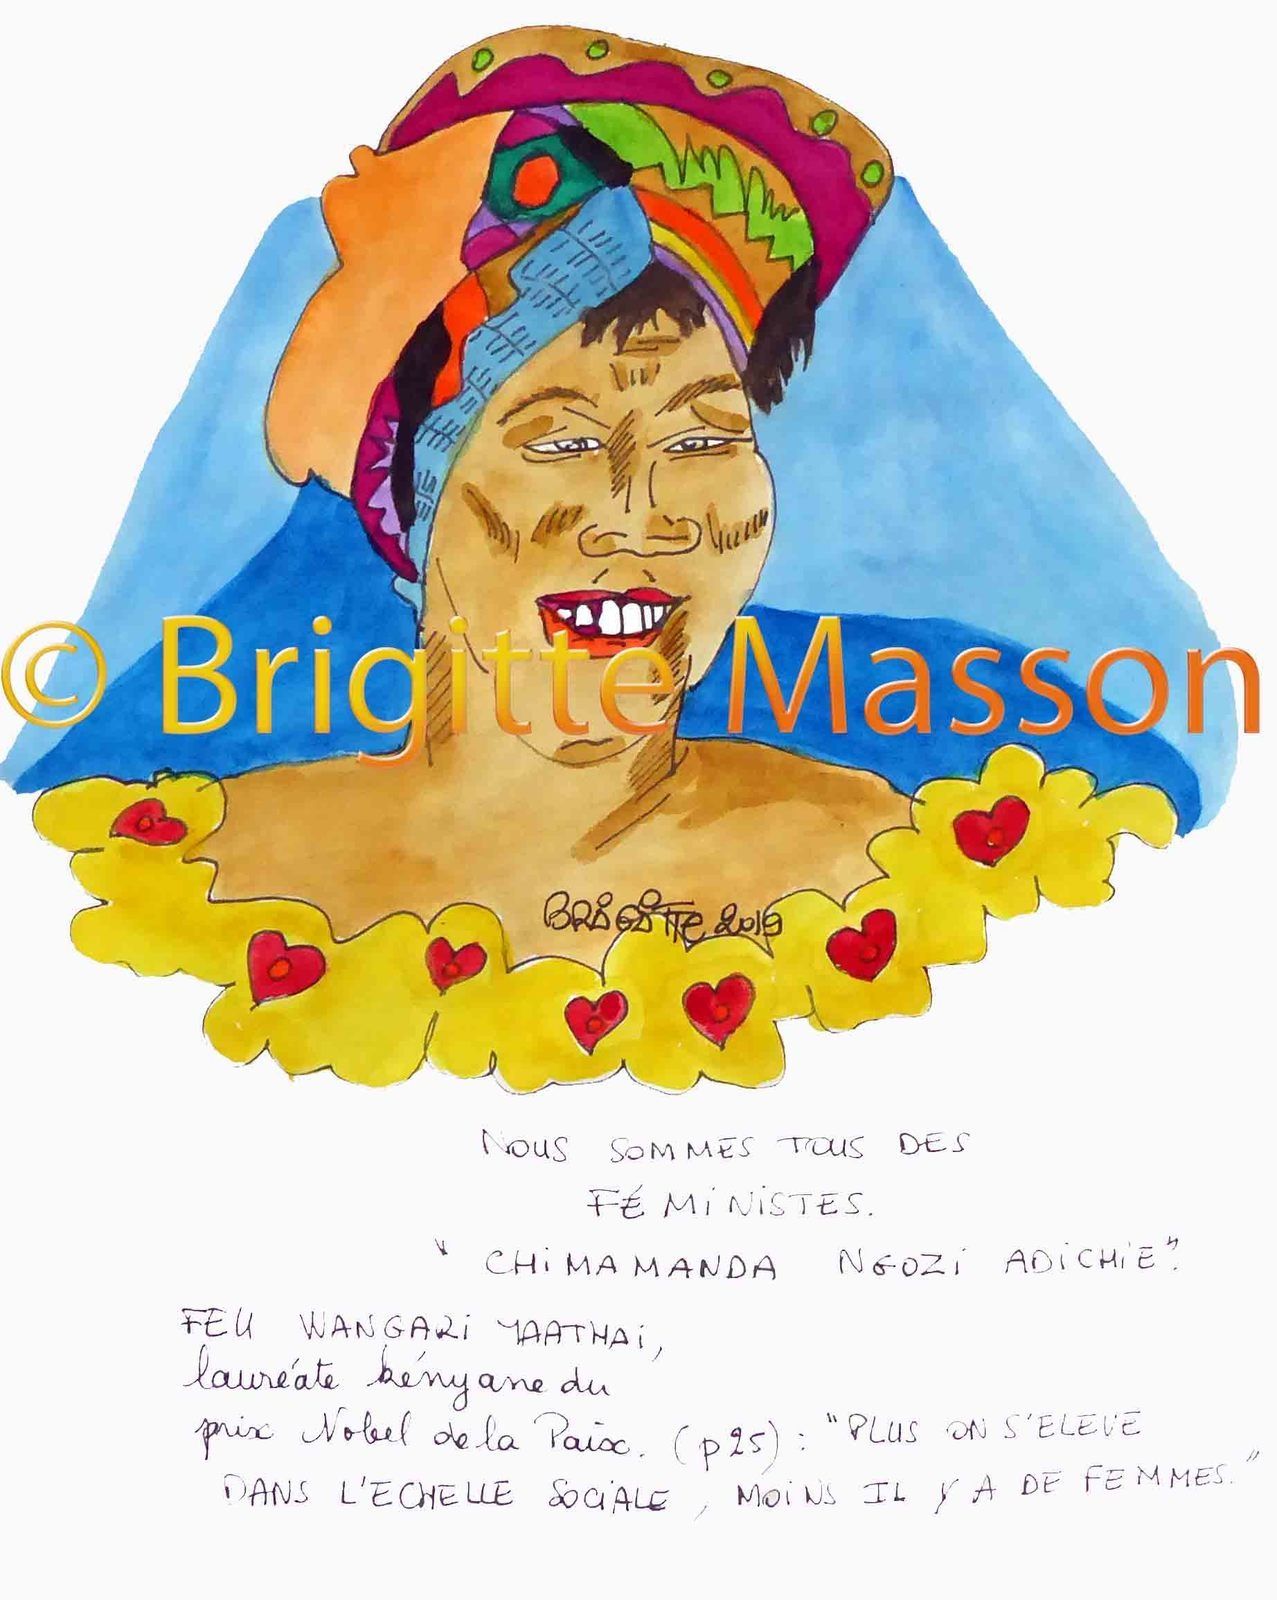 © Brigitte Masson
BRIGITTE 2019
NOUS SOMMES TOUS DES
FÉMINISTES.
" CHIMAMANDA NGOZI ADICHIE".
FEU WANGARI MAATHAI,
lauréate kényane du
prix Nobel de la Paix. (p25) : "PLUS ON S'ELEVE
DANS L'ECHELLE SOCIALE, MOINS IL Y A DE FEMMES."